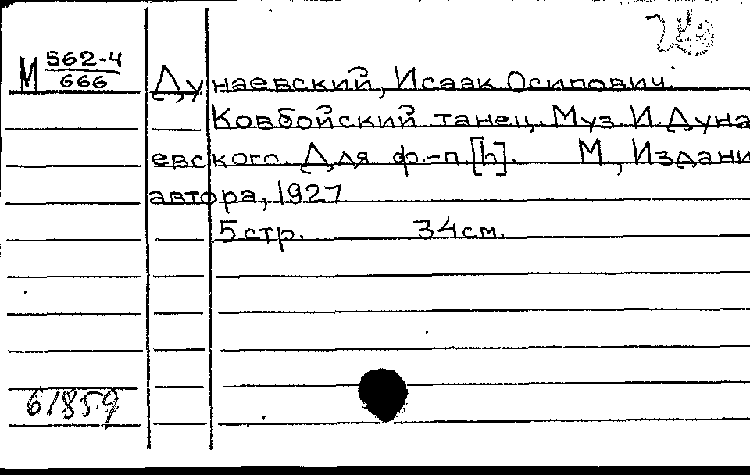 М 562-4/666
Дунаевский, Исаак Осипович.
Ковбойский танец. Муз. И. Дуна
евского. Для ф.-п. [h]. М, Издани
автора, 1927
5 стр. 34 см.
61859